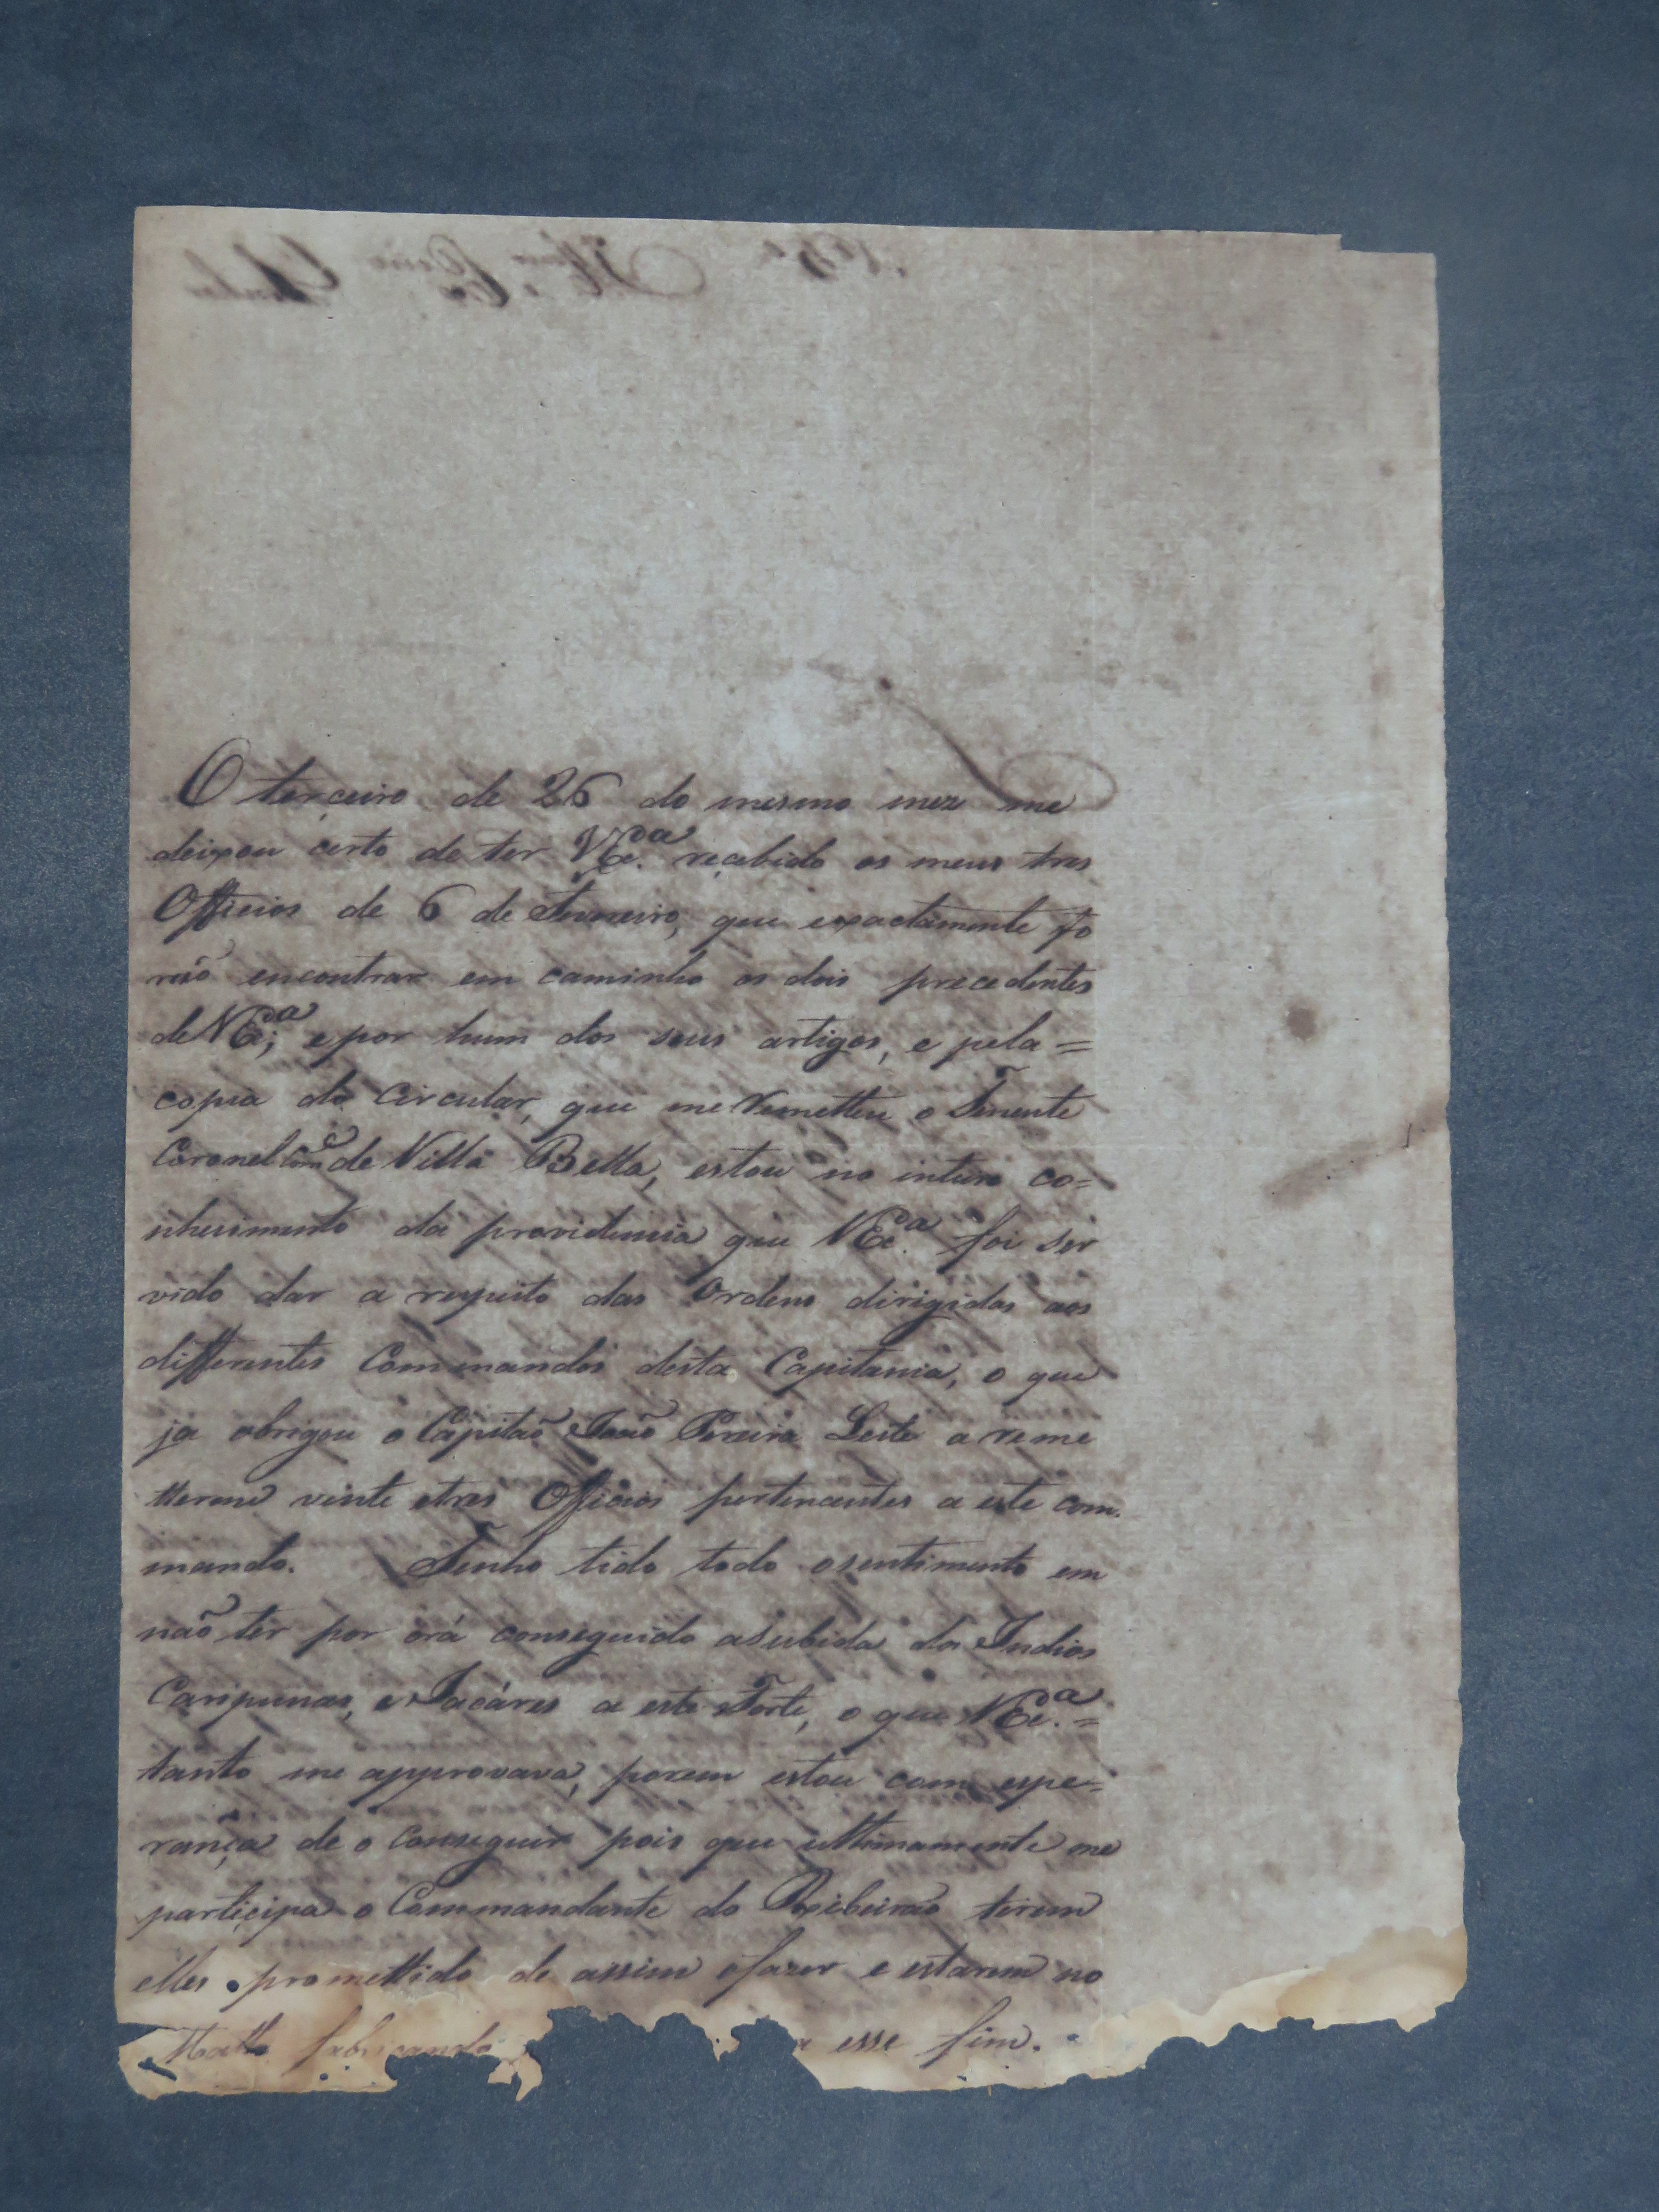 O terceiro de 26 do mesmo mez me
deixou certo de ter VEx.ª recebido os meus tres
Officios de 6 de Fevereiro, que exactamente fo
rão encontrar em caminho os dois precedentes
de VEx.ª; e por hum dos seus artigos, e pela =
copia da Circular, que me remetteu o Tenente
Coronel Com.e de Villa Bella, estou no inteiro co=
nhecimento da providencia que VEx.ª foi ser
vido dar a respeito das Ordens dirigidas aos
differentes Commandos desta Capitania, o que
ja obrigou o Capitão João Pereira Leite a reme
tterme vinte e tres Officios pertencentes a este com.
mando. Tenho tido todo o sentimento em
não ter por orá conseguido a subida dos Indios
Caripunas, e Jacáres a este Forte, o que VEx.ª =
tanto me approvava, porem estou com espe=
rança de o conseguir pois que ultimamente me
participa o Commandante do Ribeirão terem
elles promettido de assim o fazer e estarem no
Matto fabricando a esse fim.